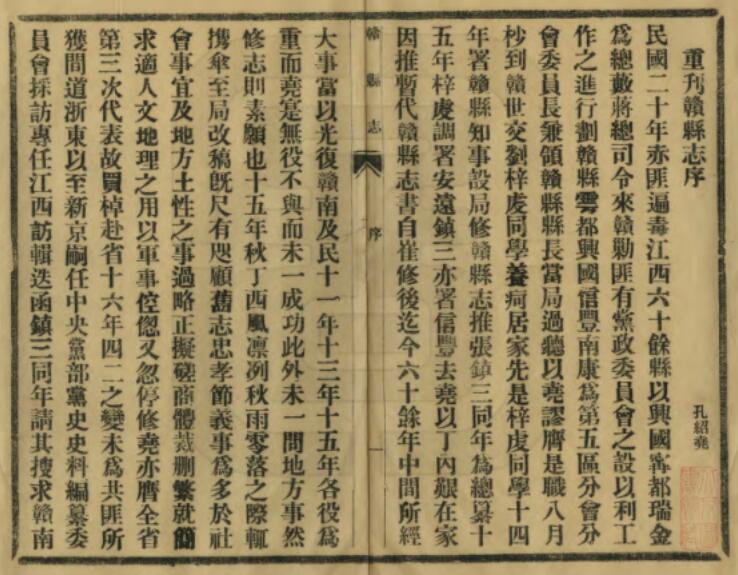 重刊贛縣志序
孔紹堯
民國二十年赤匪遍毒江西六十餘縣以興國寧都瑞金
為總藪蔣總司令來贛勦匪有黨政委員會之設以利工
作之進行劃贛縣雩都興國信豐南康為第五區分會分
會委員長兼領贛縣縣長當局過聽以堯謬膺是職八月
杪到贛世交劉梓虔同學養疴居家先是梓虔同學十四
年署贛縣知事設局修贛縣志推張鎮三同年為總纂十
五年梓虔調署安遠鎮三亦署信豐去堯以丁內艱在家
因推暫代贛縣志書自崔修後迄今六十餘年中間所經
贛縣志
序
一
大事當以光復贛南及民十一年十三年十五年各役為
重而堯寔無役不與而未一成功此外未一問地方事然
修志則素願也十五年秋丁西風凛冽秋雨零落之際輒
携傘至局改稿旣尺有咫顧舊志忠孝節義事為多於社
會事宜及地方土性之事過略正擬磋商體裁刪繁就簡
求適人文地理之用以軍事倥偬又忽停修堯亦膺全省
第三次代表故買棹赴省十六年四二之變未為共匪所
獲間道浙東以至新京嗣任中央黨部黨史史料編纂委
員會採訪專任江西訪輯迭函鎮三同年請其搜求贛南